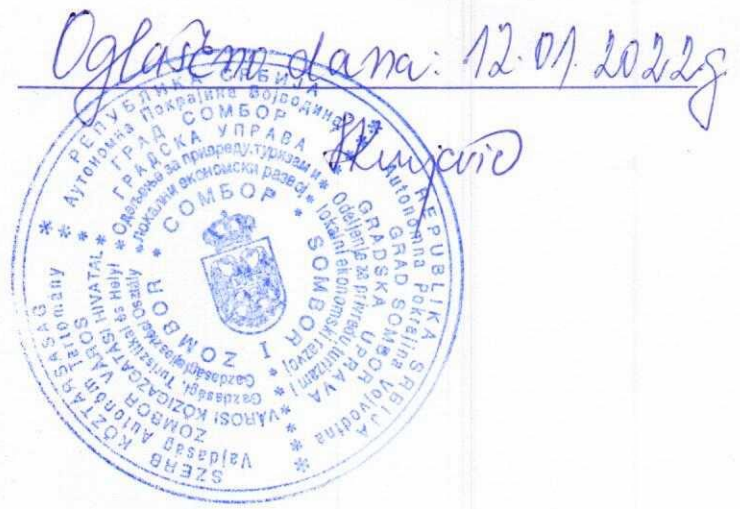 Oglašeno dana: 12.01.2022g
РЕПУБЛИКА СРБИЈА
Аутономна Покрајина Војводина
ГРАД СОМБОР
ГРАДСКА УПРАВА
Одељење за привреду, туризам и
локални економски развој
СОМБОР
REPUBLIKA SRBIJA
Autonomna pokrajina Vojvodina
GRAD SOMBOR
GRADSKA UPRAVA
Odeljenje za privredu, turizam i
lokalni ekonomski razvoj
SOMBOR
SZERB KÖZTÁRSASÁG
Vajdaság Autonóm Tartomány
ZOMBOR VÁROS
VÁROSI KÖZIGAZGATÁSI HIVATAL
Gazdasági, Turisztikai és Helyi
Gazdaságfejlesztési Osztály
ZOMBOR
I